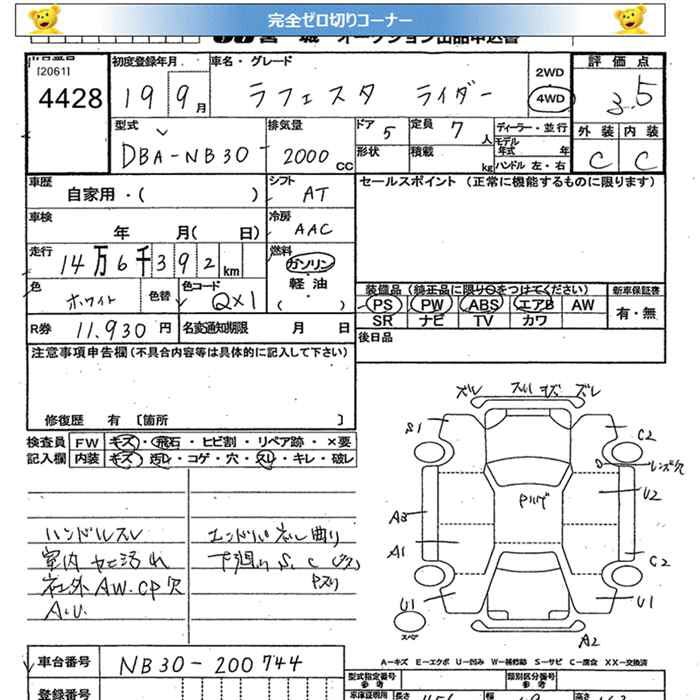 完全ゼロ切りコーナー
オークション出品申込書
[2061]
4428
初度登録年月
19 9月
車名・グレード
ラフェスタ ライダー
2WD
4WD
評価点
3.5
型式
DBA-NB30-
排気量
2000 CC
ドア 5
定員 7人
形状
積載 kg
ディーラー・並行
モデル年式 年
ハンドル 左・右
外装 内装
C C
車歴
自家用・( )
シフト
AT
セールスポイント (正常に機能するものに限ります)
車検
年 月( 日)
冷房
AAC
走行
14万6千392km
燃料
ガソリン
軽油
( )
色
ホワイト
色替
色コード
QX1
装備品 (純正品に限り○をつけてください)
PS PW ABS エアB AW
SR ナビ TV カワ
新車保証書
有・無
R券 11,930円
名変通知期限 月 日
後日品
注意事項申告欄(不具合内容等は具体的に記入して下さい)
修復歴 有 〔箇所 〕
検査員 FW キズ・飛石・ヒビ割・リペア跡・×要
記入欄 内装 キズ・汚レ・コゲ・穴・スレ・キレ・破レ
ハンドルスレ
室内ヤケ汚れ
社外AW.CP欠
A.U.
下廻りS.C
ズレ
キズ ズレ
S1
C2
レンズ穴
U2
A3
A1
C2
U1
U1
スペア
A2
A-キズ E-エクボ U-凹み W-補修跡 S-サビ C-腐食 XX-交換済
車台番号 NB30-200744
登録番号
型式指定番号
参考
類別区分番号
参考